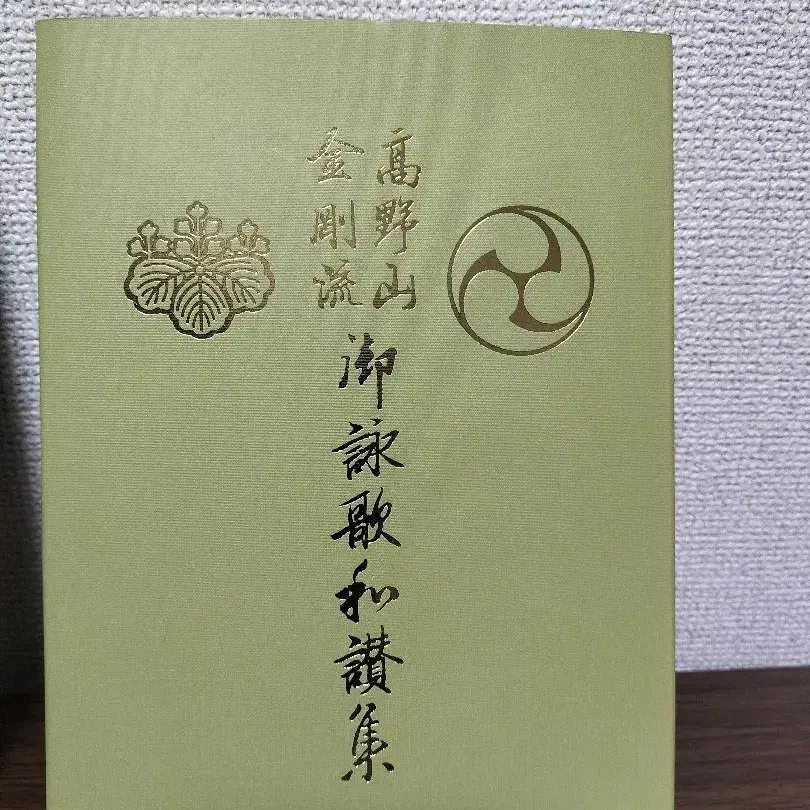 高野山
金剛流
御詠歌和讃集